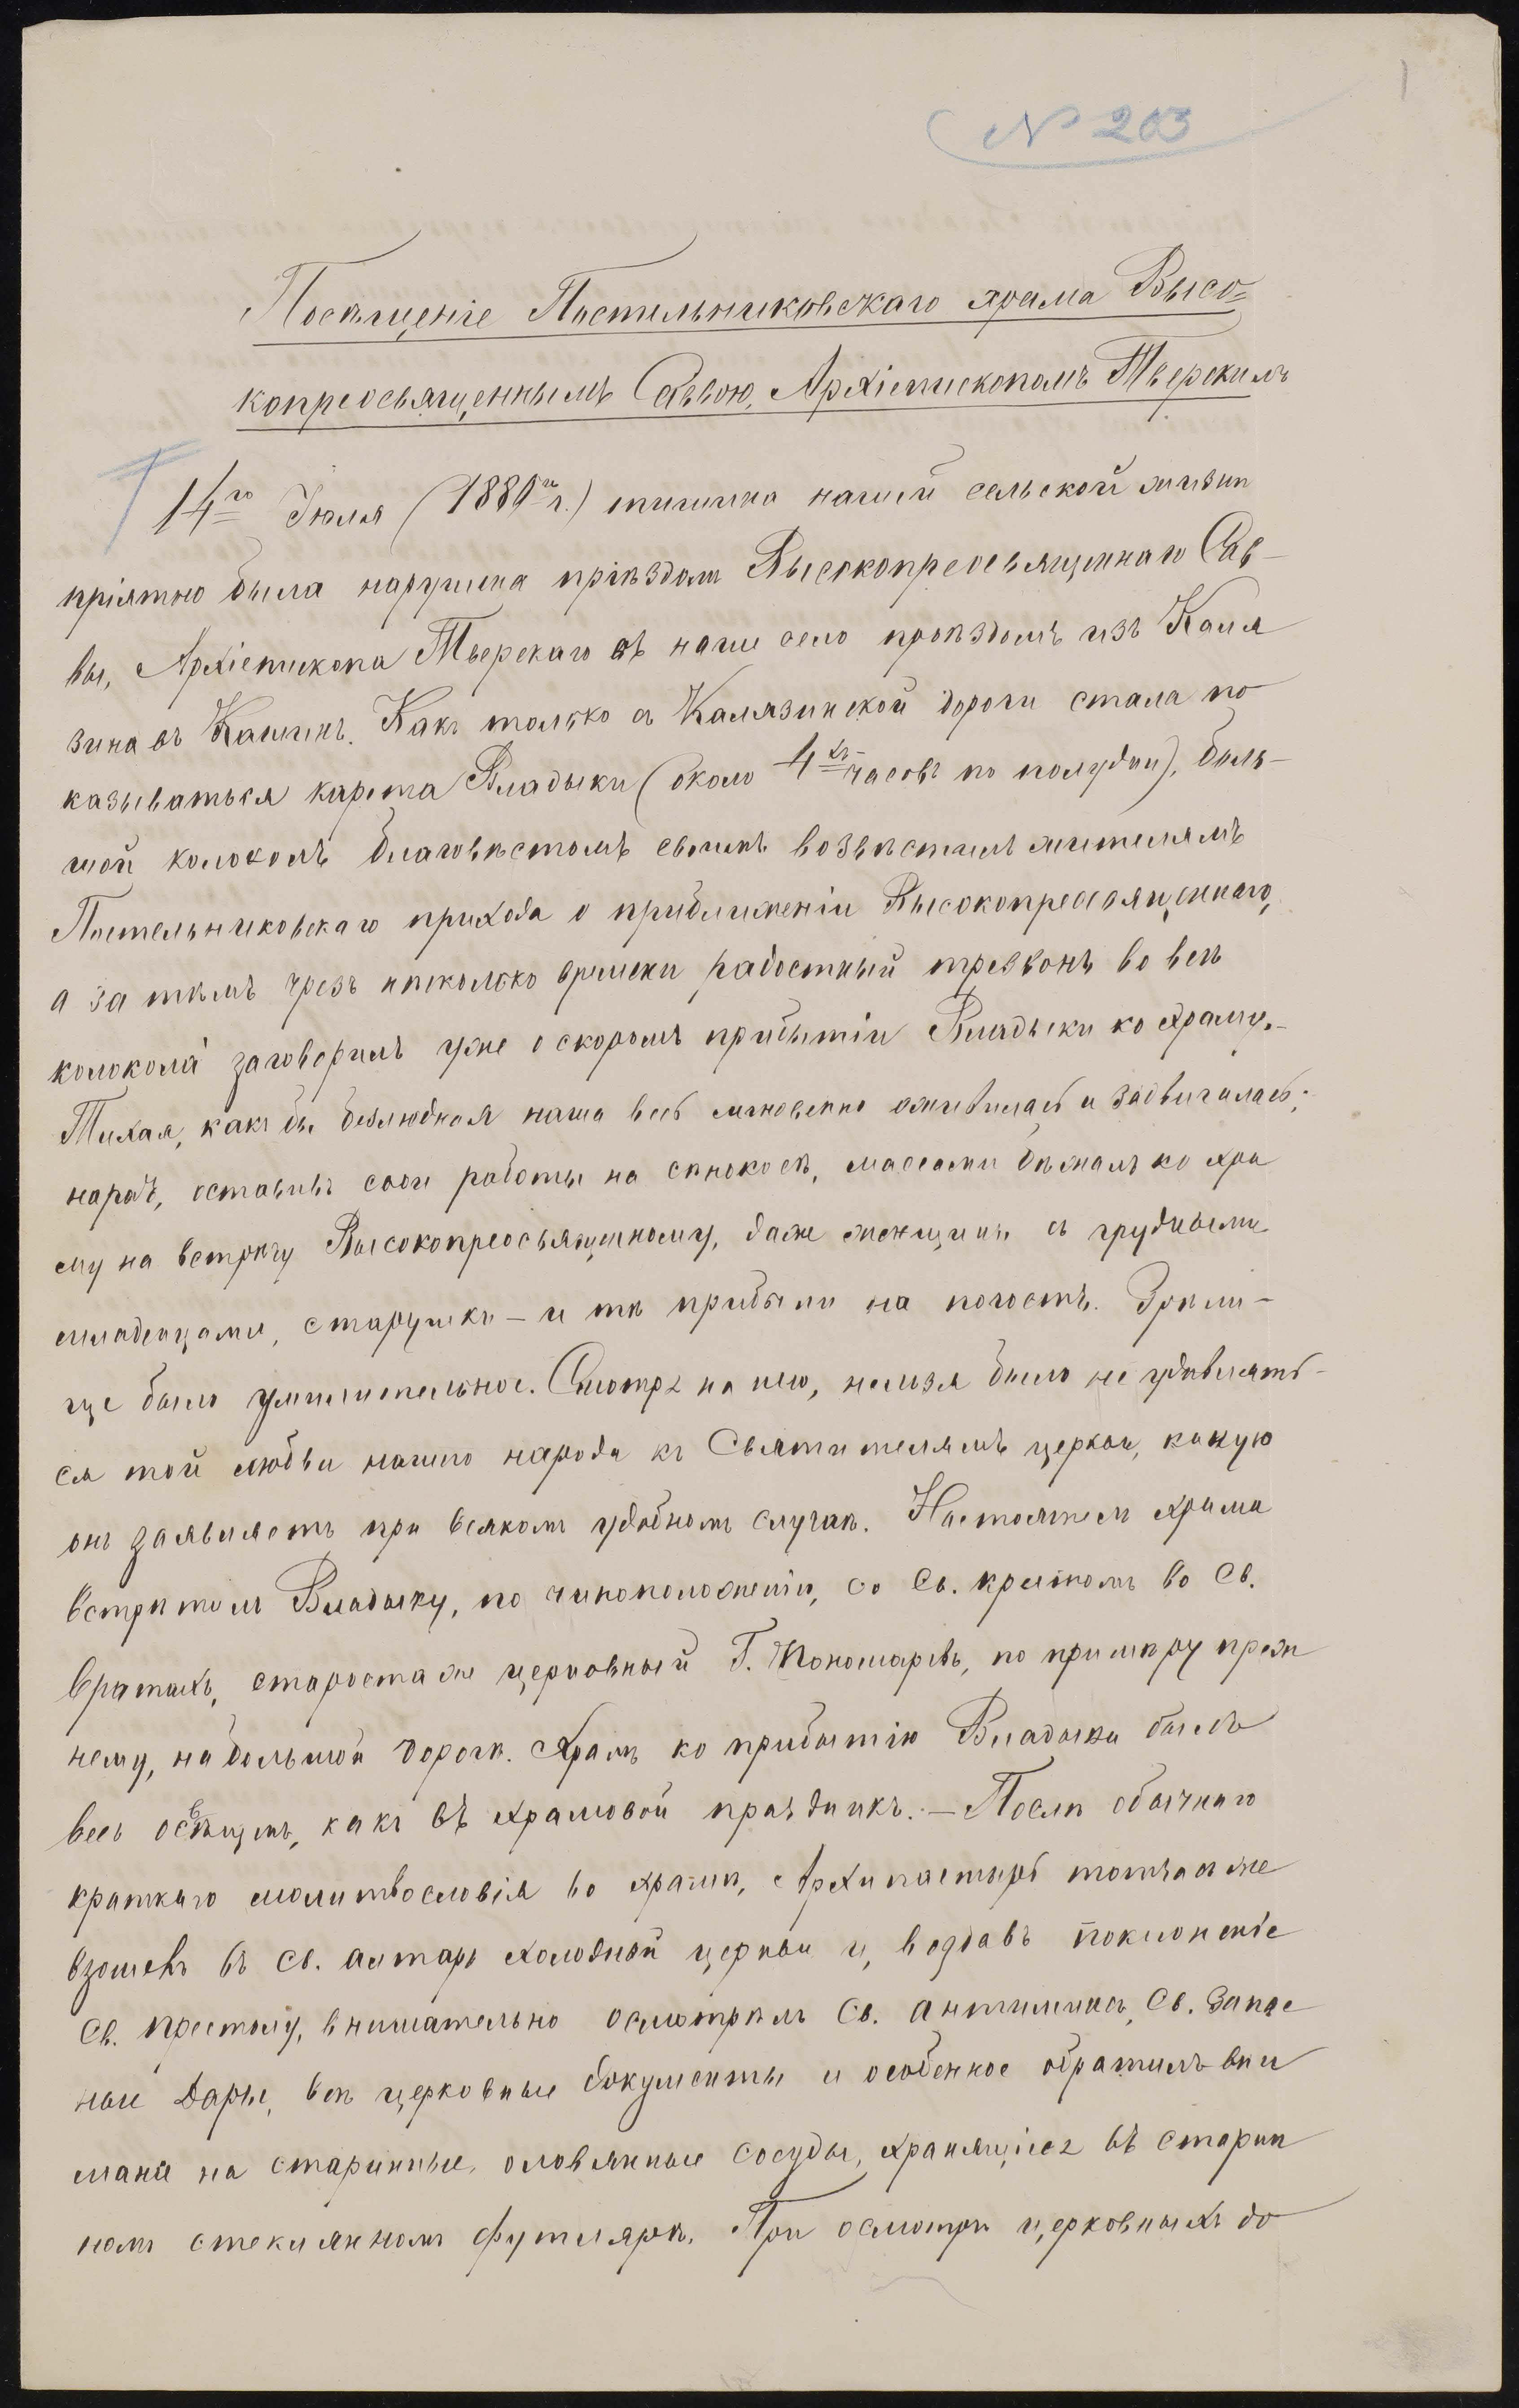 1
№ 203
Посѣщеніе Постельниковскаго храма Высо=
копреосвященнымъ Саввою, Архіепископомъ Тверскимъ
14го Іюля (188 г.) тишина нашей сельской жизни
пріятно была нарушена пріѣздомъ Высокопреосвященнаго Сав-
вы, Архіепископа Тверскаго въ наше село проѣздомъ изъ Каля
зина въ Кашинъ. Какъ только съ Калязинской дороги стала по
казываться карета Владыки (около 4хъ часовъ по полудни), боль-
шой колоколъ благовѣстомъ своимъ возвѣстилъ жителямъ
Постельниковскаго прихода о приближеніи Высокопреосвященнаго,
а за тѣмъ чрезъ нѣсколько времени радостный трезвонъ во всѣ
колокола заговорилъ уже о скоромъ прибытіи Владыки ко храму.-
Тихая, какъ бы безлюдная наша весь мгновенно оживилась и задвигалась;
народъ, оставивъ свои работы на сѣнокосѣ, массами бѣжалъ ко хра
му на встрѣчу Высокопреосвященному, даже женщины съ грудными
младенцами, старушки - и тѣ прибыли на погостъ. Зрѣли-
ще было умилительное. Смотря на него, нельзя было не удивлять-
ся той любви нашего народа къ Святителямъ церкви, какую
онъ заявляетъ при всякомъ удобномъ случаѣ. Настоятель храма
встрѣтилъ Владыку, по чиноположенію, со Св. крестомъ во Св.
вратахъ, староста же церковный Г. Пономаревъ, по примѣру преж
нему, на большой дорогѣ. Храмъ ко прибытію Владыки былъ
весь освѣщенъ, какъ въ храмовой праздникъ. - Послѣ обычнаго
краткаго молитвословія во храмѣ, Архипастырь тотчасъ же
взошелъ въ Св. алтарь холодной церкви и, воздавъ поклоненіе
Св. престолу, внимательно осмотрѣлъ Св. антиминсъ, Св. Запас
ные Дары, всѣ церковные документы и особенное обратилъ вни
маніе на старинные, оловянные сосуды, хранящіеся въ старин
номъ стеклянномъ футлярѣ. При осмотрѣ церковныхъ до